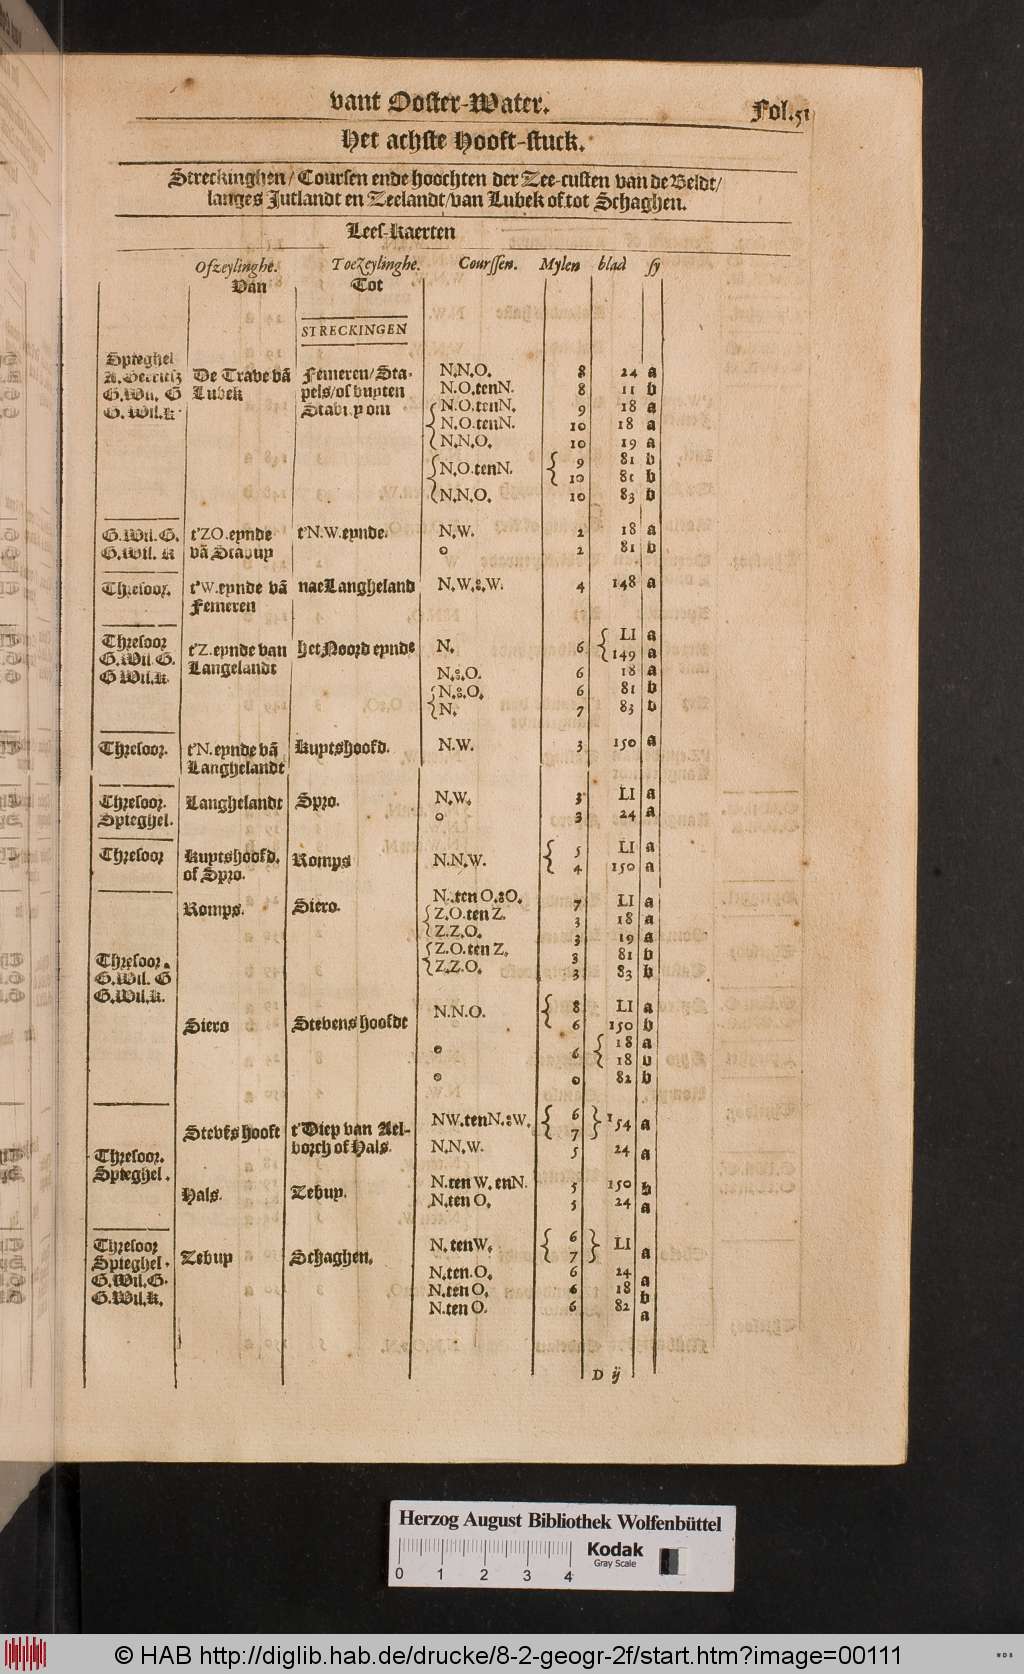 vant Ooster-Water. Fol.51
Het achste Hooft-stuck.
Streckinghen/ Coursen ende hoochten der Zee-custen van de Beldt/
langes Jutlandt en Zeelandt/van Lubek of tot Schaghen.
Lees-kaerten
Ofzeylinghe. Toezeylinghe. Courssen. Mylen blad sy
Van Tot
STRECKINGEN
Spieghel
De Trave vā Femeren/Sta- N.N.O. 8 24 a
G.Wil. G Lubek pels/of buyten N.O.tenN. 8 11 b
G. Wil.k om N.O.tenN. 9 18 a
N.O.tenN. 10 18 a
N.N.O. 10 19 a
N.O.tenN. 9 81 b
10 81 b
N.N.O. 10 83 b
G.Wil.G. t'ZO.eynde t'N.W.eynde. N.W. 2 18 a
G.Wil. k vā Stabuy o 2 81 b
Thresoor. t'W.eynde vā nae Langheland N.W.:.W. 4 148 a
Femeren
Thresoor t'Z.eynde van het Noord eynde N. 6 LI a
G.Wil G. Langelandt 149 a
G Wil.k. N.:.O. 6 18 a
N.:.O. 6 81 b
N. 7 83 b
Thresoor. t'N.eynde vā Kuytshoofd. N.W. 3 150 a
Langhelandt
Thresoor. Langhelandt Spro. N.W. 3 LI a
Spieghel. o 3 24 a
Thresoor Kuytshoofd. Romps N.N.W. 5 LI a
of Spro. 4 150 a
Romps. Siero. N.ten O.:.O. 7 LI a
Z.O.ten Z. 3 18 a
Z.Z.O. 3 19 a
Thresoor. Z.O.ten Z. 3 81 b
G.Wil. G Z.Z.O. 3 83 b
G.Wil.k.
Siero Stevens hoofdt N.N.O. 8 LI a
6 150 b
o 6 18 a
18 b
o 0 82 b
Stevēs hooft t'Diep van Ael- NW.tenN.:.W. 6 7 154 a
Thresoor. borch of Hals. N.N.W. 5 24 a
Spieghel.
Hals. Zebuy. N.ten W. enN. 5 150 b
N.ten O. 5 24 a
Thresoor Zebuy Schaghen. N.tenW. 6 7 LI a
Spieghel. N.ten.O. 6 24 a
G.Wil.G. N.ten O. 6 18 b
G.Wil.k. N.ten O. 6 82 a
D ij
Herzog August Bibliothek Wolfenbüttel
Kodak
Gray Scale
0 1 2 3 4
© HAB http://diglib.hab.de/drucke/8-2-geogr-2f/start.htm?image=00111